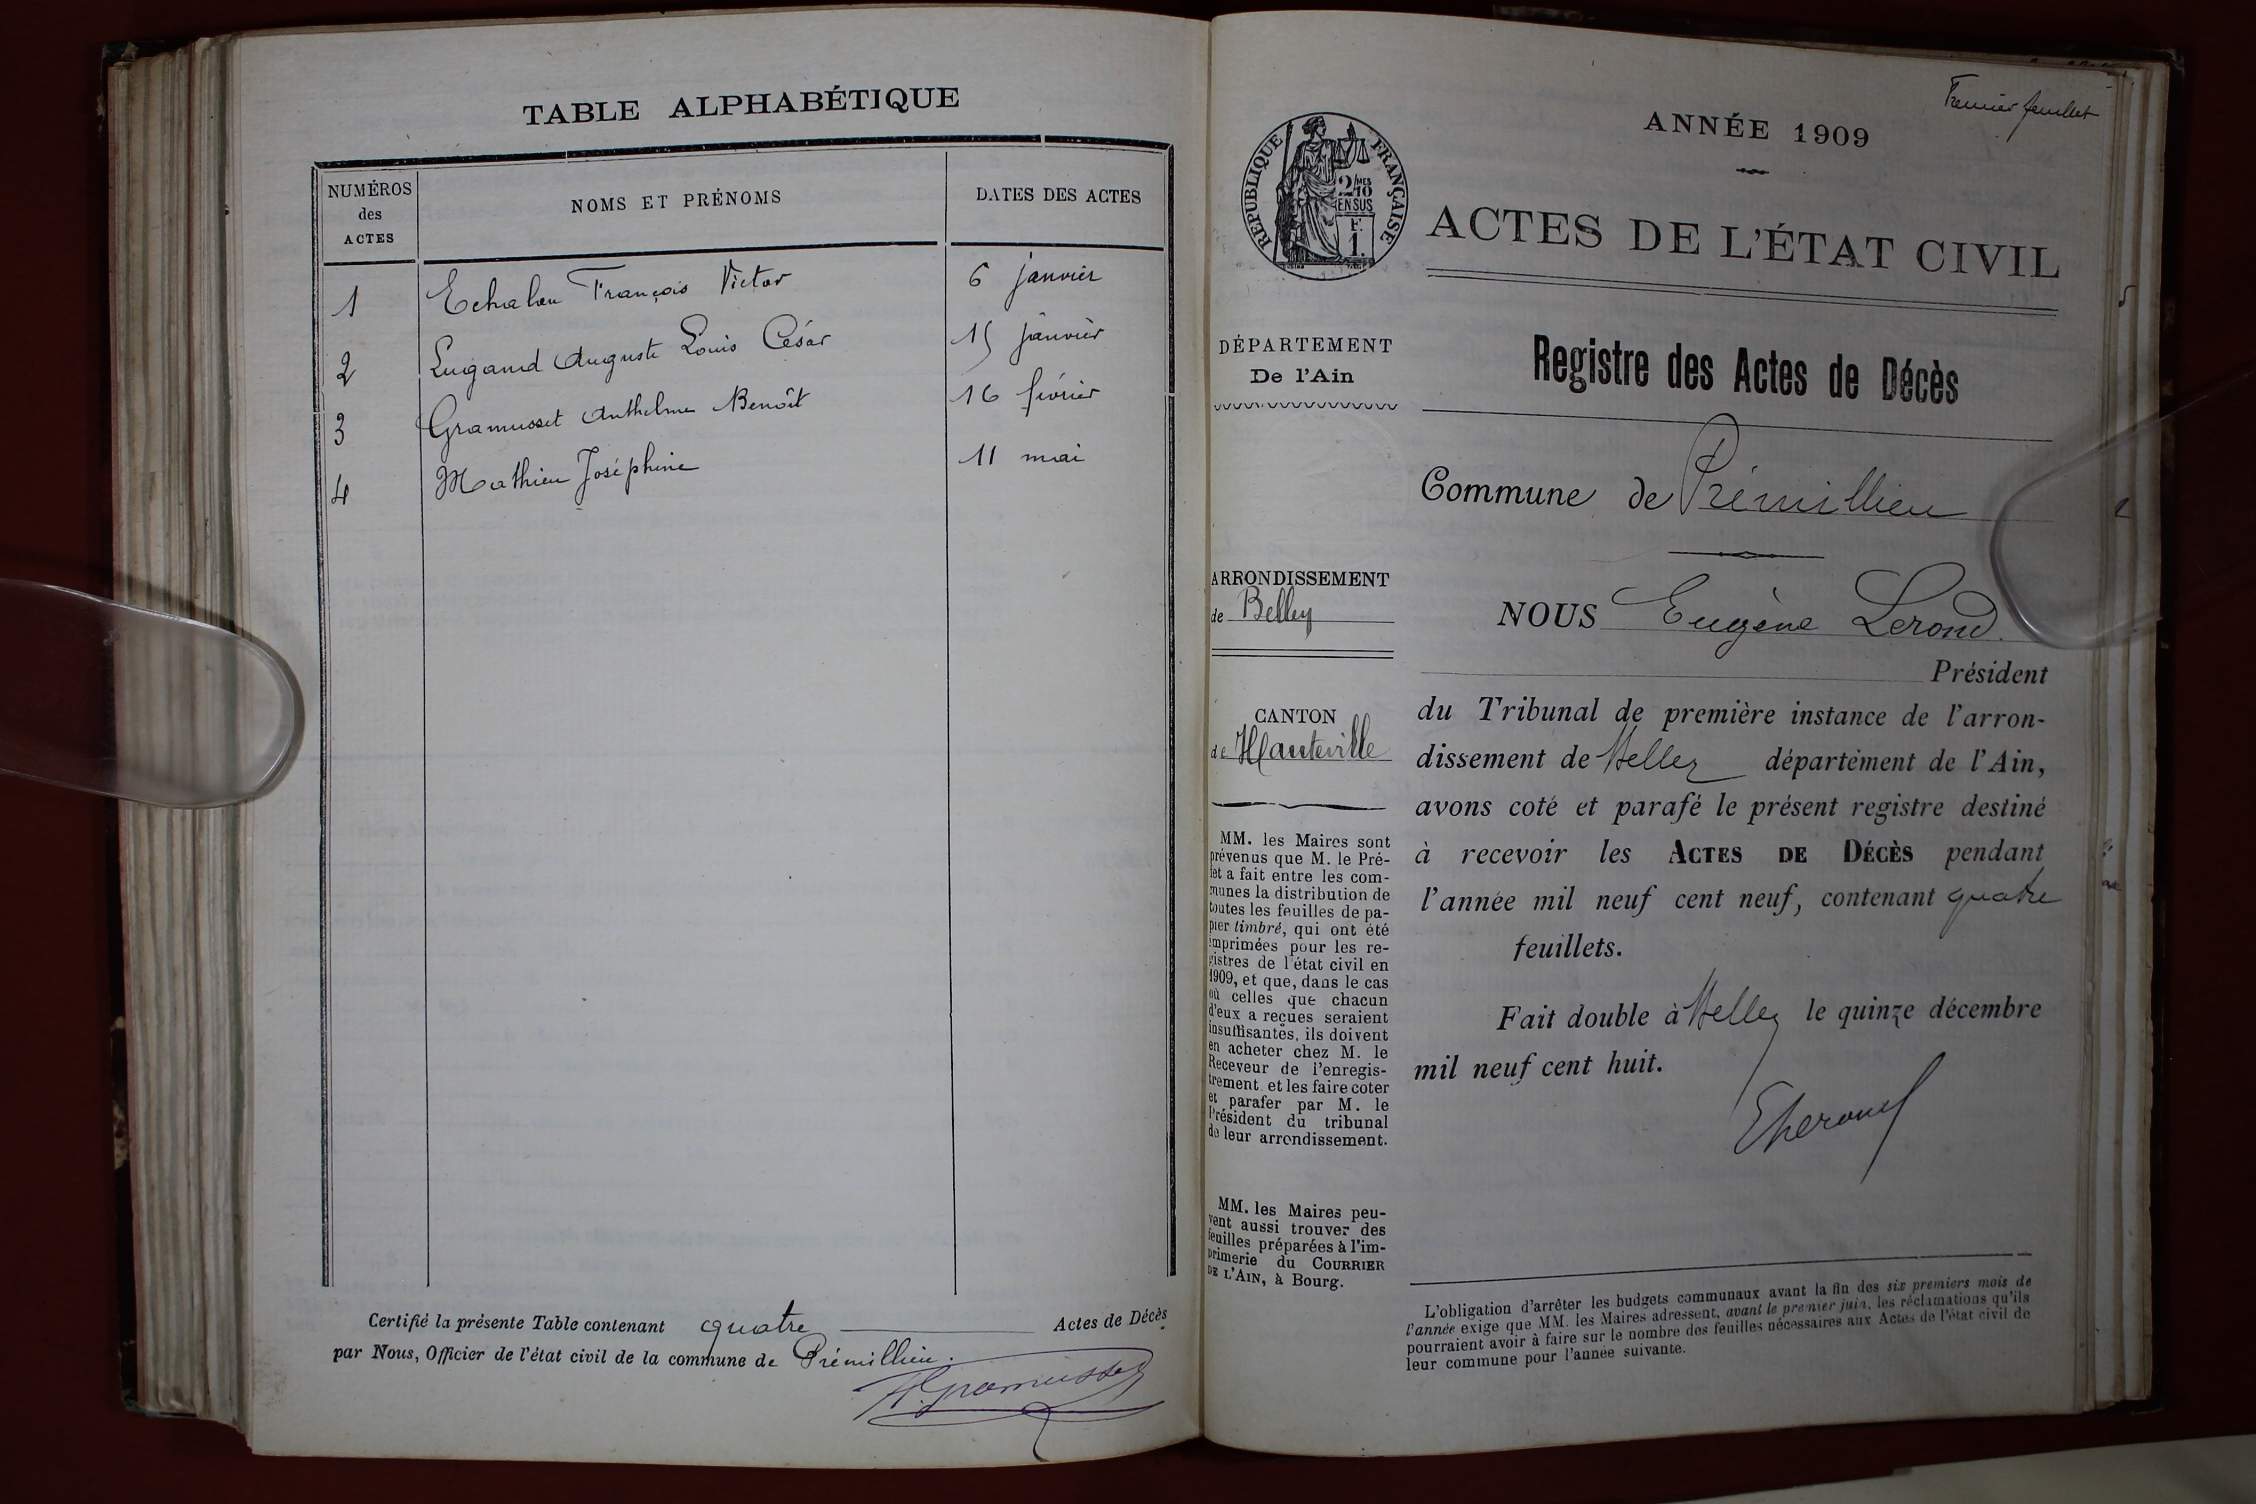 TABLE ALPHABÉTIQUE
NUMÉROS
des
ACTES
NOMS ET PRÉNOMS
DATES DES ACTES
1 Echalon François Victor 6 janvier
2 Luigand Auguste Louis César 15 janvier
3 Gramusset Anthelme Benoît 16 février
4 Mathieu Joséphine 11 mai
Certifié la présente Table contenant quatre Actes de Décès
par Nous, Officier de l'état civil de la commune de Prémillieu.
Gramusset
Premier feuillet
ANNÉE 1909
RÉPUBLIQUE FRANÇAISE
2/10MES
EN SUS
F.
1.
ACTES DE L'ÉTAT CIVIL
DÉPARTEMENT
De l'Ain
ARRONDISSEMENT
de Belley
CANTON
de Hauteville
MM. les Maires sont
prévenus que M. le Pré-
fet a fait entre les com-
munes la distribution de
toutes les feuilles de pa-
pier timbré, qui ont été
imprimées pour les re-
gistres de l'état civil en
1909, et que, dans le cas
où celles que chacun
d'eux a reçues seraient
insuffisantes, ils doivent
en acheter chez M. le
Receveur de l'enregis-
trement et les faire coter
et parafer par M. le
Président du tribunal
de leur arrondissement.
MM. les Maires peu-
vent aussi trouver des
feuilles préparées à l'im-
primerie du COURRIER
DE L'AIN, à Bourg.
Registre des Actes de Décès
Commune de Prémillieu
NOUS Eugène Lerond
Président
du Tribunal de première instance de l'arron-
dissement de Belley département de l'Ain,
avons coté et parafé le présent registre destiné
à recevoir les ACTES DE DÉCÈS pendant
l'année mil neuf cent neuf, contenant quatre
feuillets.
Fait double à Belley le quinze décembre
mil neuf cent huit.
L'obligation d'arrêter les budgets communaux avant la fin des six premiers mois de
l'année exige que MM. les Maires adressent, avant le premier juin, les réclamations qu'ils
pourraient avoir à faire sur le nombre des feuilles nécessaires aux Actes de l'état civil de
leur commune pour l'année suivante.